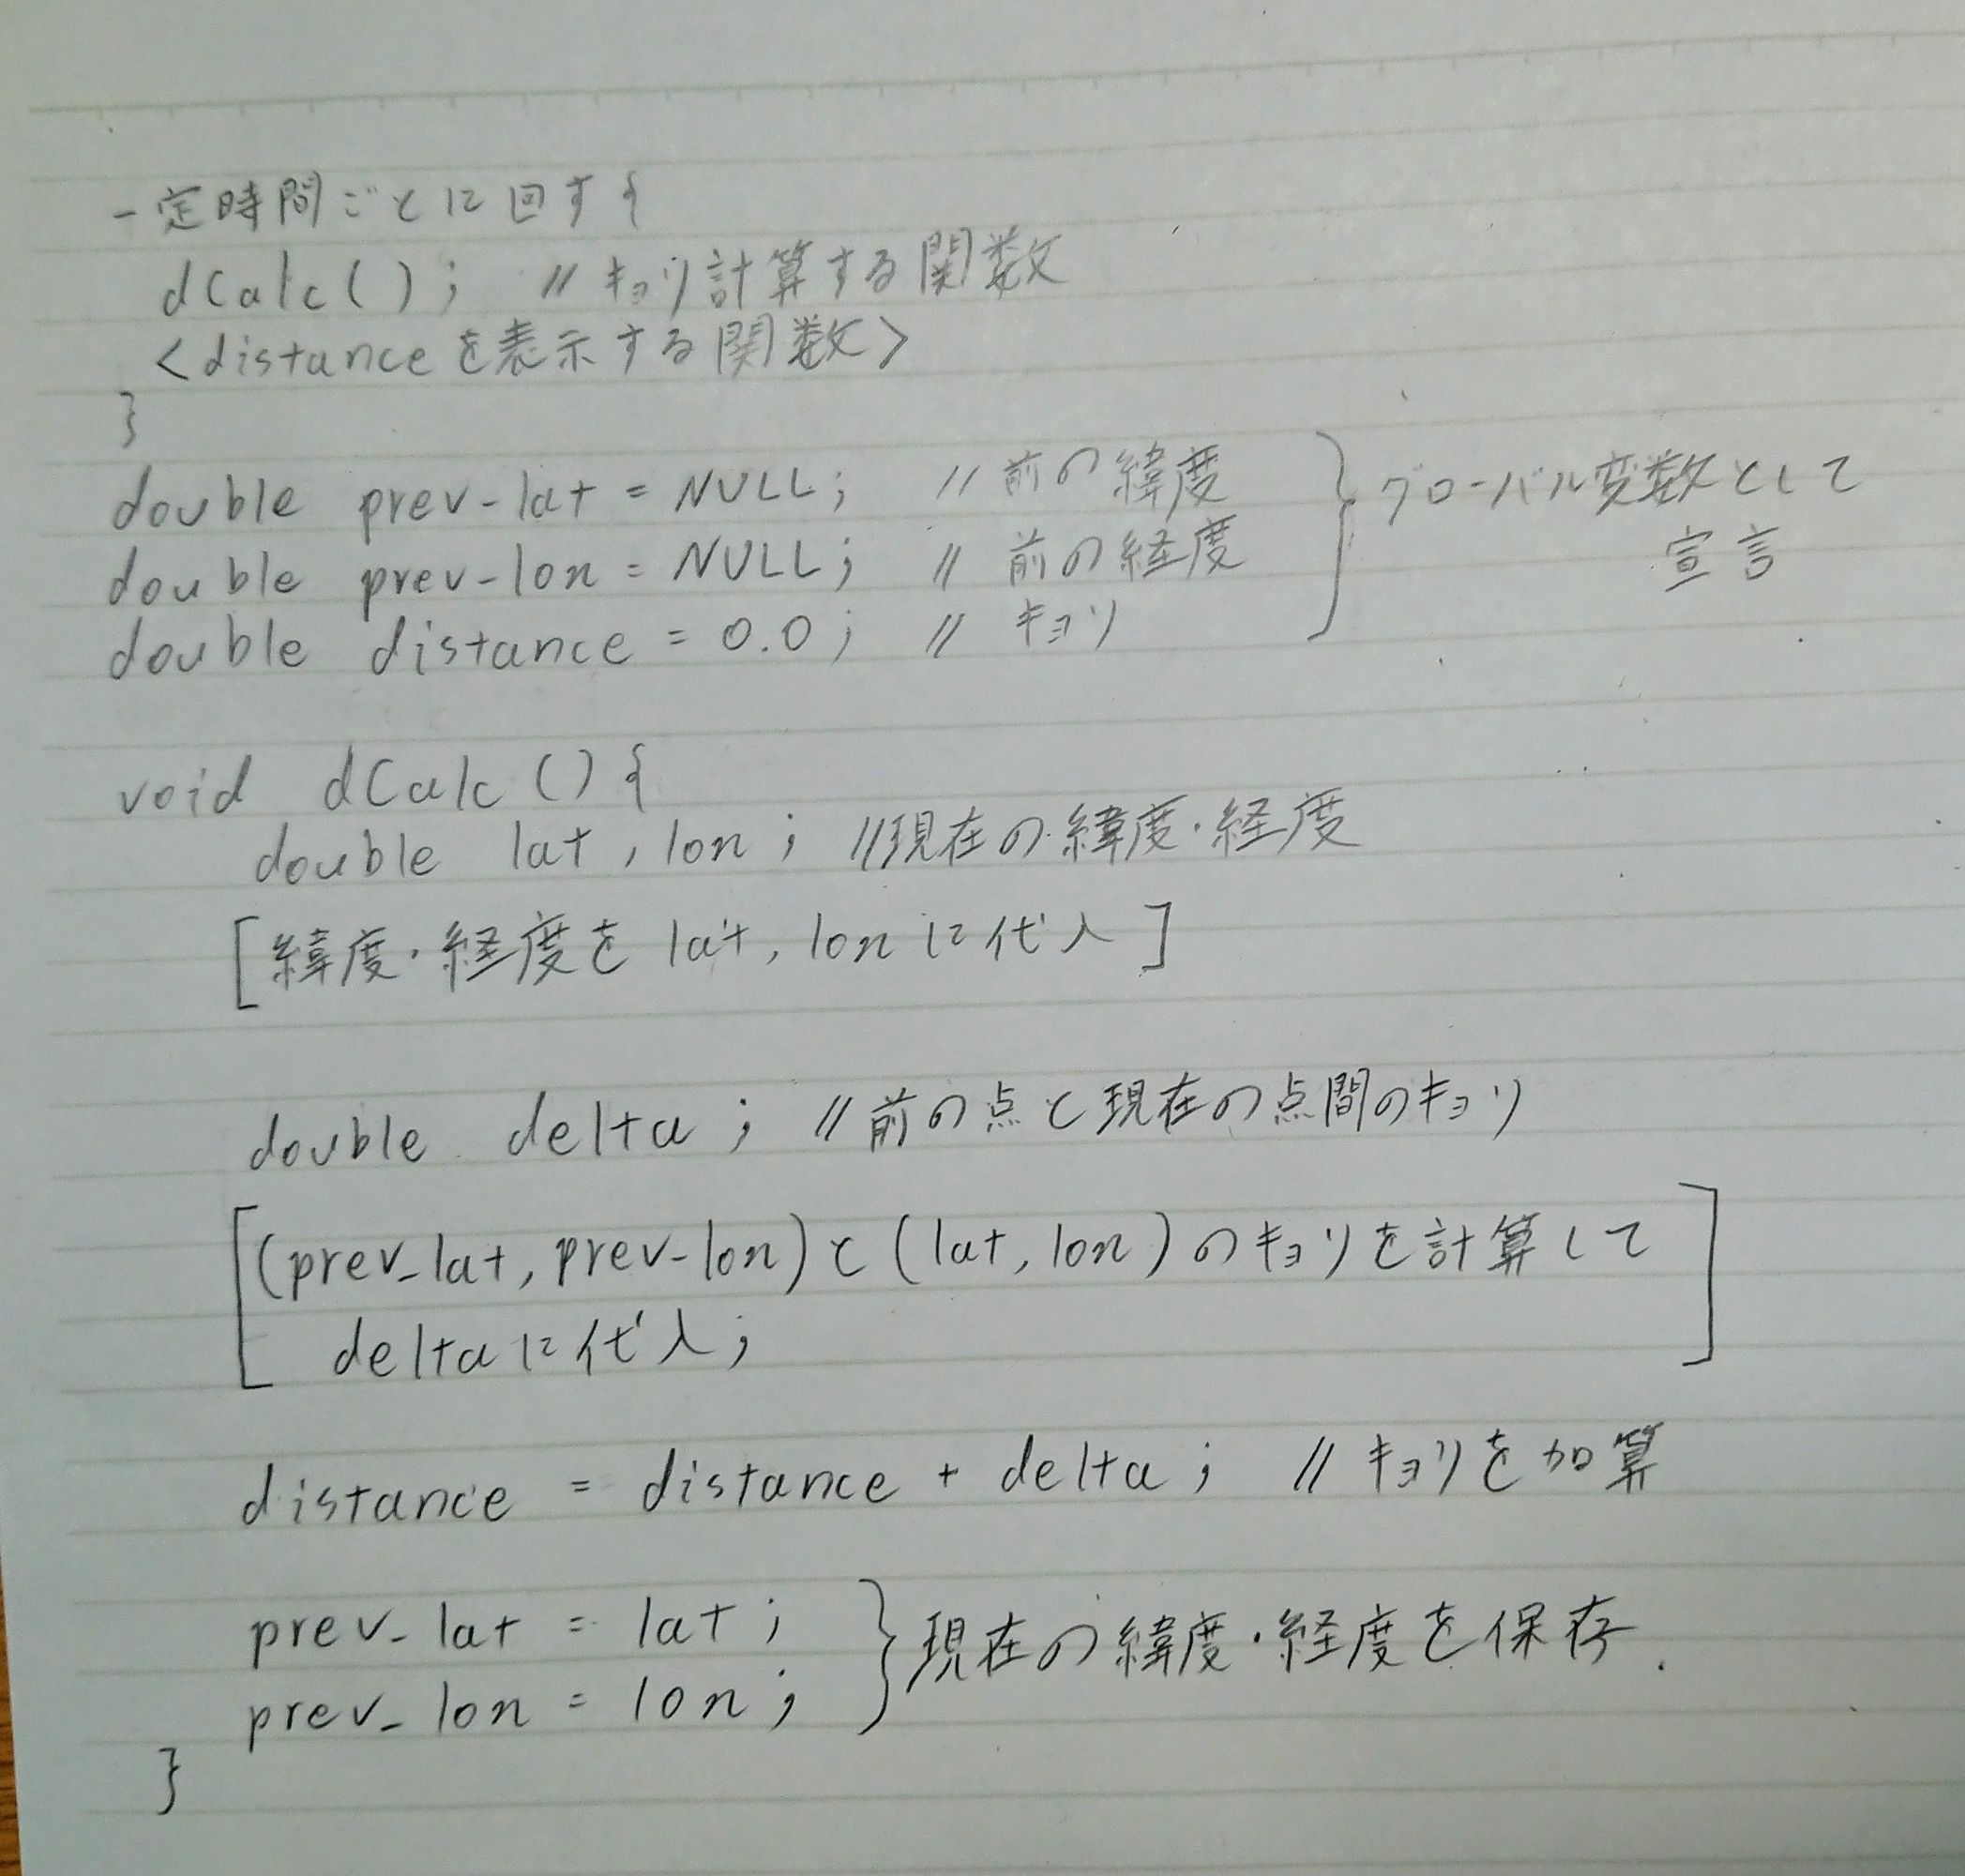 一定時間ごとに回す{
dCalc(); // キョリ計算する関数
<distanceを表示する関数>
}
double prev-lat = NULL; // 前の緯度
double prev-lon = NULL; // 前の経度
double distance = 0.0; // キョリ
グローバル変数として
宣言
void dCalc(){
double lat, lon; //現在の緯度・経度
[緯度・経度をlat, lonに代入]
double delta; // 前の点と現在の点間のキョリ
[(prev_lat, prev-lon)と(lat, lon)のキョリを計算して
deltaに代入;]
distance = distance + delta; // キョリを加算
prev_lat = lat;
prev_lon = lon;
}現在の緯度・経度を保存.
}